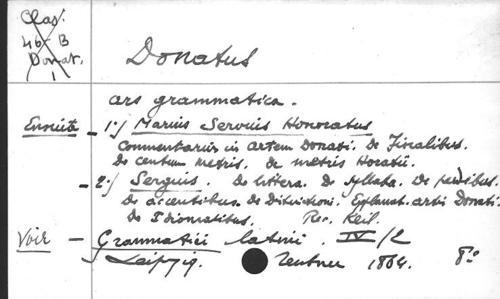 Clas.
46-B
Donat.
1
Donatus
ars grammatica.
Ensuite - 1:/ Marius Servius Honoratus
Commentarius in artem Donati. de Finalibus.
De centum metris. de metris Horatii.
- 2:/ Sergius. de littera. de syllaba. De pedibus.
de accentibus. de Distinctione. Explanat. artis Donati.
de Idiomatibus. Rec. Keil.
Voir - Grammatici latini. IV/2
Leipzig. Teubner 1864. 8º